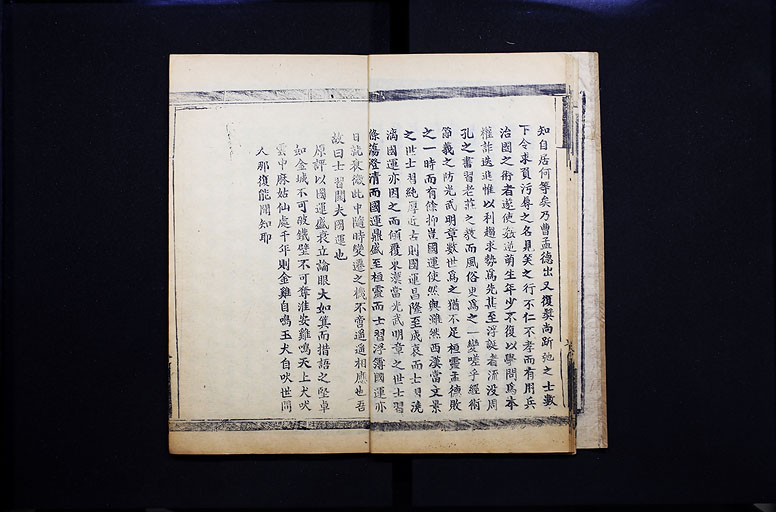 知自居何等矣乃曹孟德出又復奬尚跅弛之士數
下令求負汚辱之名見笑之行不仁不孝而有用兵
治國之術者遂使姦逆萌生年少不復以學問爲本
權詐迭進惟以利趨求勢爲先甚至浮誕者流没周
孔之書習老莊之教而風俗又爲之一變嗟乎經術
節義之防光武明章數世爲之猶不足桓靈孟德敗
之一時而有餘抑豈國運使然與雖然西漢當文景
之世士習純厚近古則國運昌隆至成哀而士習澆
漓國運亦因之而傾覆東漢當光武明章之世士習
條蕩澄清而國運鼎盛至桓靈而士習浮薄國運亦
日就衰微此中隨時變遷之機不啻遥遥相應也吾
故曰士習關夫國運也
原評以國運盛衰立論眼大如箕而措語之堅卓
如金城不可破鐵壁不可奪淮安雞鳴天上犬吠
雲中麻姑仙處千年則金雞自鳴玉犬自吠世間
人那復能聞知耶